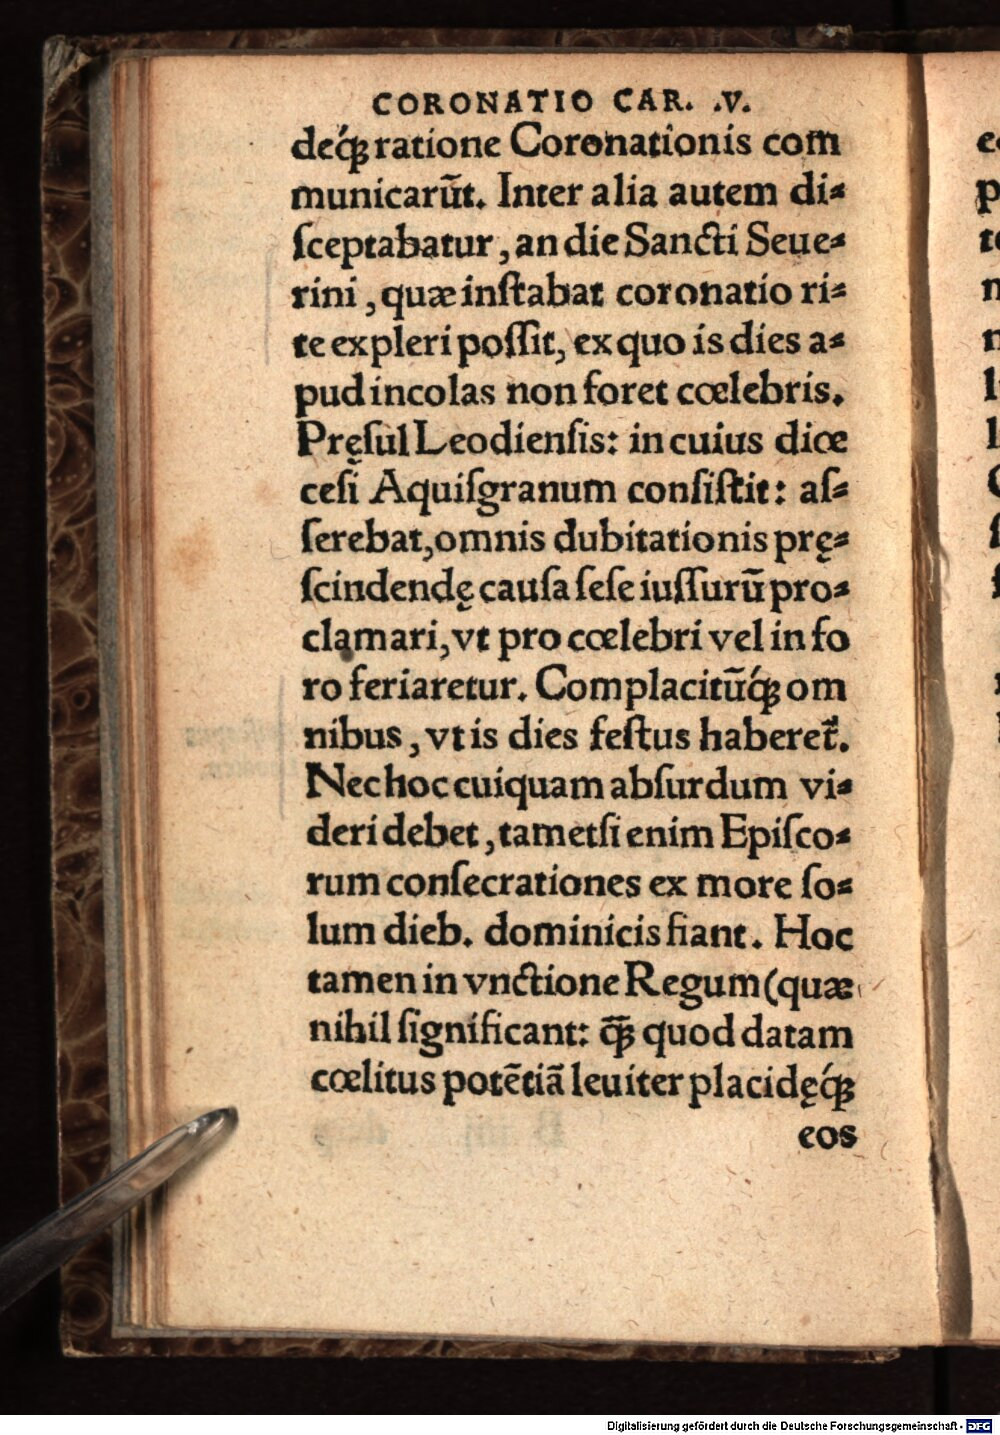 CORONATIO CAR. .V.
deq́ꝫ ratione Coronationis com
municarūt. Inter alia autem di⸗
ſceptabatur, an die Sancti Seue⸗
rini, quæ inſtabat coronatio ri⸗
te expleri poſſit, ex quo is dies a⸗
pud incolas non foret cœlebris.
Pręſul Leodienſis: in cuius diœ
ceſi Aquiſgranum conſiſtit: aſ⸗
ſerebat, omnis dubitationis prę⸗
ſcindendę cauſa ſeſe iuſſurū pro⸗
clamari, vt pro cœlebri vel in fo
ro feriaretur. Complacitūq́ꝫ om
nibus, vt is dies feſtus haberet̃.
Nec hoc cuiquam abſurdum vi⸗
deri debet, tametſi enim Epiſco⸗
rum conſecrationes ex more ſo⸗
lum dieb. dominicis fiant. Hoc
tamen in vnctione Regum (quæ
nihil ſignificant: q̄ꝫ quod datam
cœlitus potētiā leuiter placidęq́ꝫ
eos
Digitalisierung gefördert durch die Deutsche Forschungsgemeinschaft - DFG